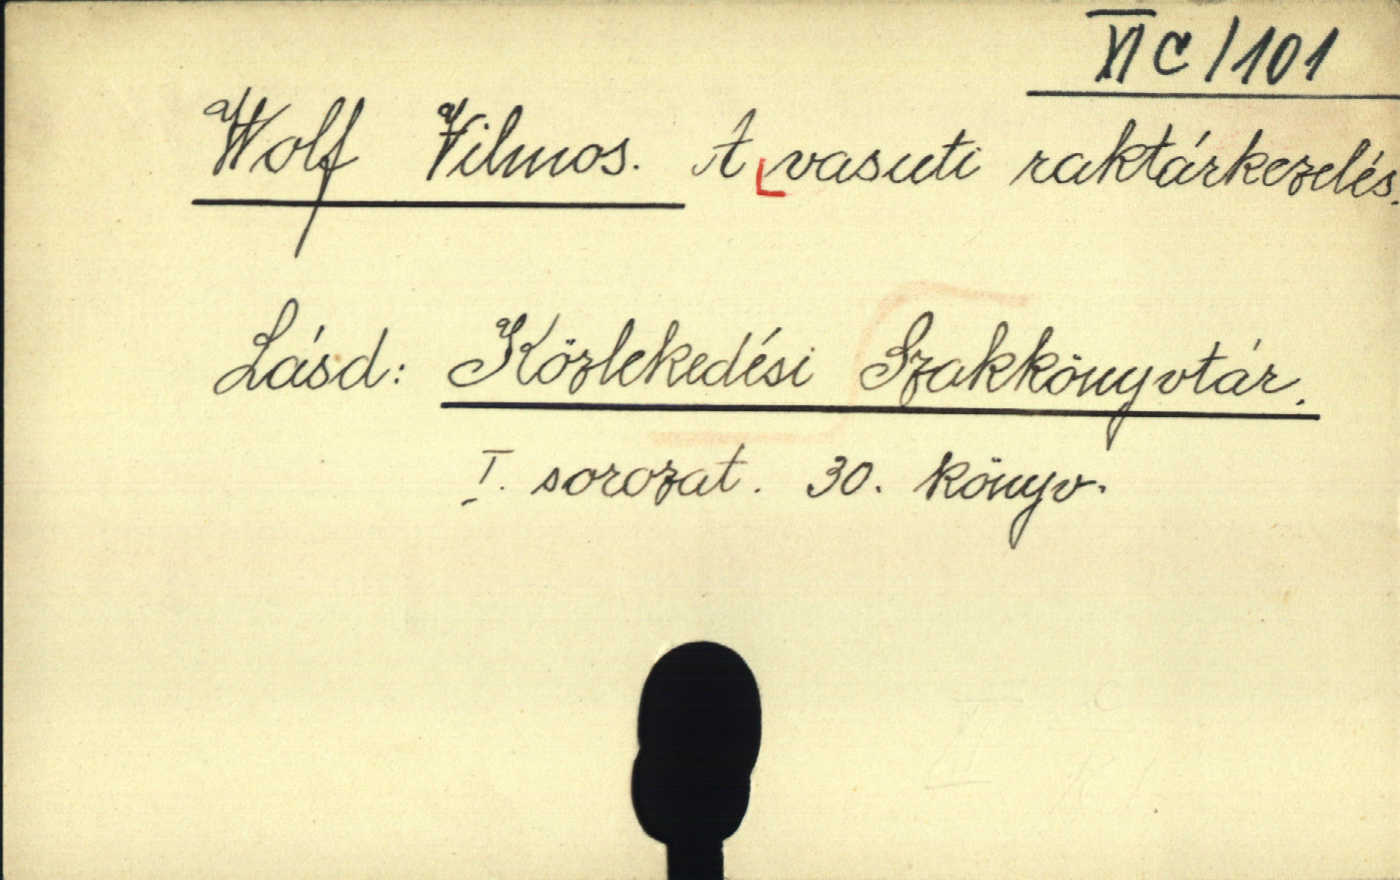 XI C / 101
Wolf Vilmos. A vasuti raktárkezelés.
Lásd: Közlekedési Szakkönyvtár.
I. sorozat. 30. könyv.